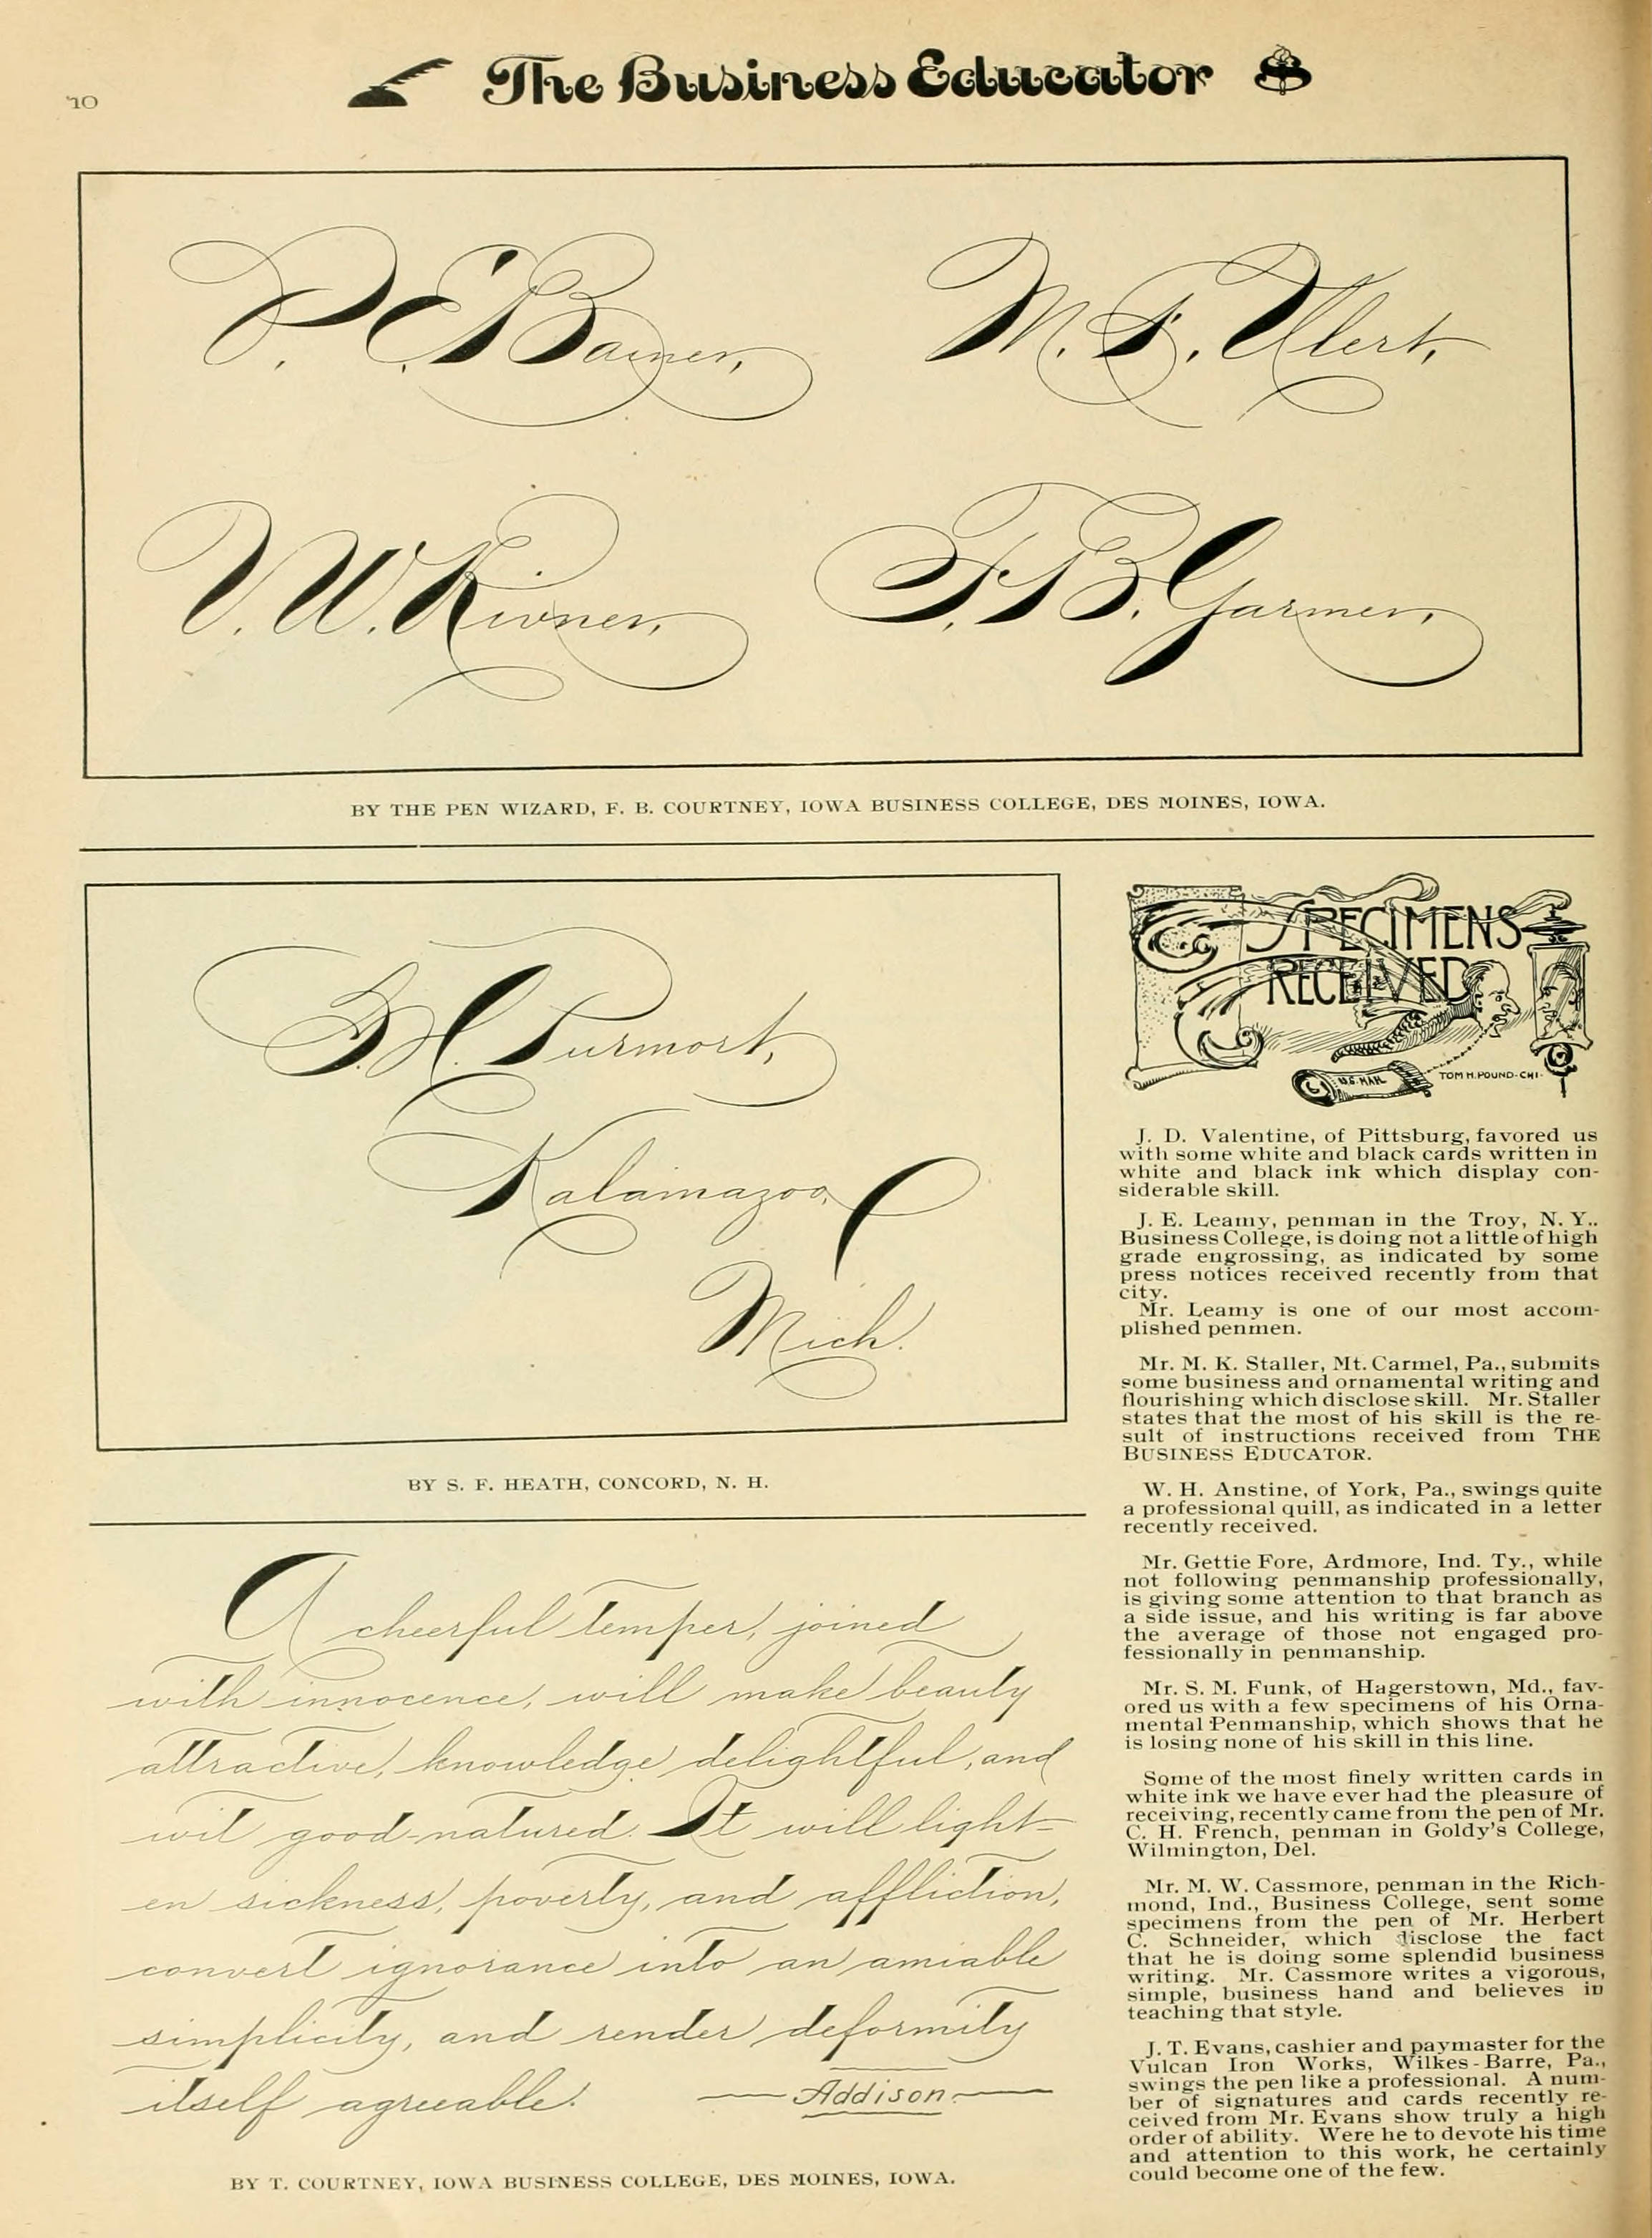 10
The Business Educator
M.
V. W.
F. B. Garmer,
BY THE PEN WIZARD, F. B. COURTNEY, IOWA BUSINESS COLLEGE, DES MOINES, IOWA.
Purmort,
Kalamazoo,
Mich.
BY S. F. HEATH, CONCORD, N. H.
A cheerful temper, joined
with innocence, will make beauty
attractive, knowledge delightful, and
wit good-natured. It will light-
en sickness, poverty, and affliction,
convert ignorance into an amiable
simplicity, and render deformity
itself agreeable.
Addison.
BY T. COURTNEY, IOWA BUSINESS COLLEGE, DES MOINES, IOWA.
SPECIMENS
RECEIVED
U.S. MAIL
TOM H. POUND-CHI-
J. D. Valentine, of Pittsburg, favored us
with some white and black cards written in
white and black ink which display con-
siderable skill.
J. E. Leamy, penman in the Troy, N. Y..
Business College, is doing not a little of high
grade engrossing, as indicated by some
press notices received recently from that
city.
Mr. Leamy is one of our most accom-
plished penmen.
Mr. M. K. Staller, Mt. Carmel, Pa., submits
some business and ornamental writing and
flourishing which disclose skill. Mr. Staller
states that the most of his skill is the re-
sult of instructions received from THE
BUSINESS EDUCATOR.
W. H. Anstine, of York, Pa., swings quite
a professional quill, as indicated in a letter
recently received.
Mr. Gettie Fore, Ardmore, Ind. Ty., while
not following penmanship professionally,
is giving some attention to that branch as
a side issue, and his writing is far above
the average of those not engaged pro-
fessionally in penmanship.
Mr. S. M. Funk, of Hagerstown, Md., fav-
ored us with a few specimens of his Orna-
mental Penmanship, which shows that he
is losing none of his skill in this line.
Some of the most finely written cards in
white ink we have ever had the pleasure of
receiving, recently came from the pen of Mr.
C. H. French, penman in Goldy's College,
Wilmington, Del.
Mr. M. W. Cassmore, penman in the Rich-
mond, Ind., Business College, sent some
specimens from the pen of Mr. Herbert
C. Schneider, which disclose the fact
that he is doing some splendid business
writing. Mr. Cassmore writes a vigorous,
simple, business hand and believes in
teaching that style.
J. T. Evans, cashier and paymaster for the
Vulcan Iron Works, Wilkes-Barre, Pa.,
swings the pen like a professional. A num-
ber of signatures and cards recently re-
ceived from Mr. Evans show truly a high
order of ability. Were he to devote his time
and attention to this work, he certainly
could become one of the few.